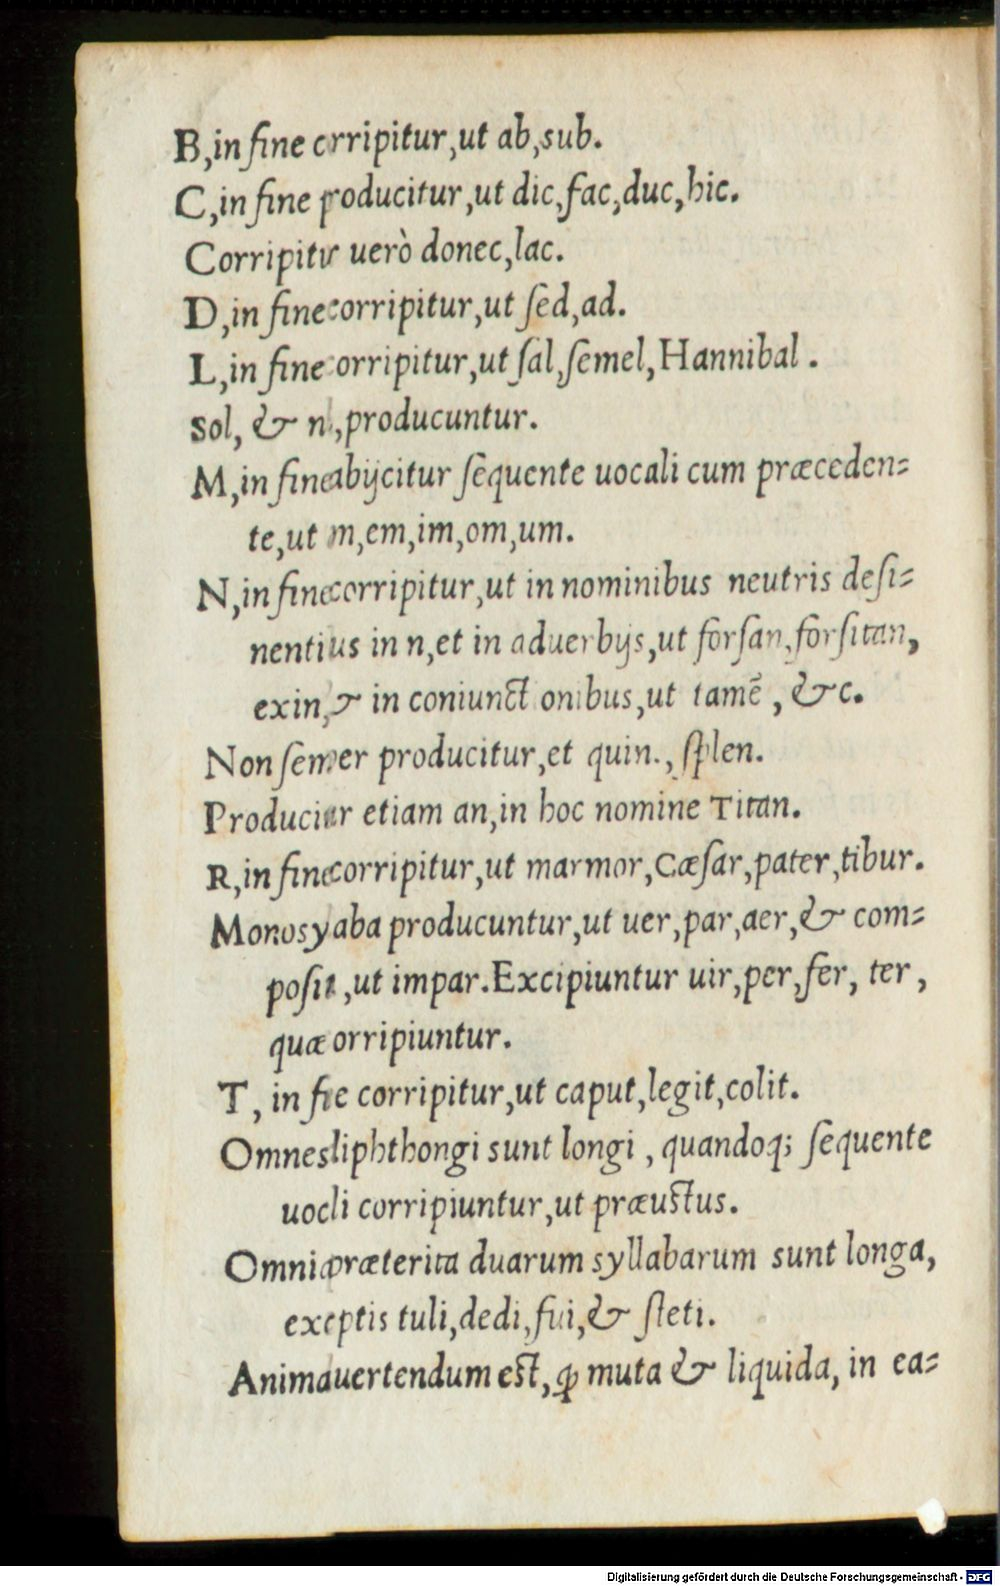 B,in fine crripitur,ut ab,sub.
C,in fine poducitur,ut dic,fac,duc,hic.
Corripitur uerò donec,lac.
D,in fine corripitur,ut sed,ad.
L,in fine corripitur,ut sal,semel,Hannibal.
Sol, & nl,producuntur.
M,in fine abijcitur sequente uocali cum præceden=
te,ut m,em,im,om,um.
N,in fine corripitur,ut in nominibus neutris desi=
nentius in n,et in aduerbijs,ut forsan,forsitan,
exin,& in coniunctonibus,ut tamē, &c.
Non semper producitur,et quin., splen.
Produciur etiam an,in hoc nomine Titan.
R,in fine corripitur,ut marmor,Cæsar,pater,tibur.
Monosyaba producuntur,ut uer,par,aer,& com=
posit,ut impar.Excipiuntur uir,per,fer, ter,
quæ orripiuntur.
T, in fie corripitur,ut caput,legit,colit.
Omnes diphthongi sunt longi, quandoq; sequente
uocli corripiuntur,ut præustus.
Omnia præterita duarum syllabarum sunt longa,
exceptis tuli,dedi,fui,& steti.
Animauertendum est,ꝙ muta & liquida, in ea=
Digitalisierung gefördert durch die Deutsche Forschungsgemeinschaft - DFG